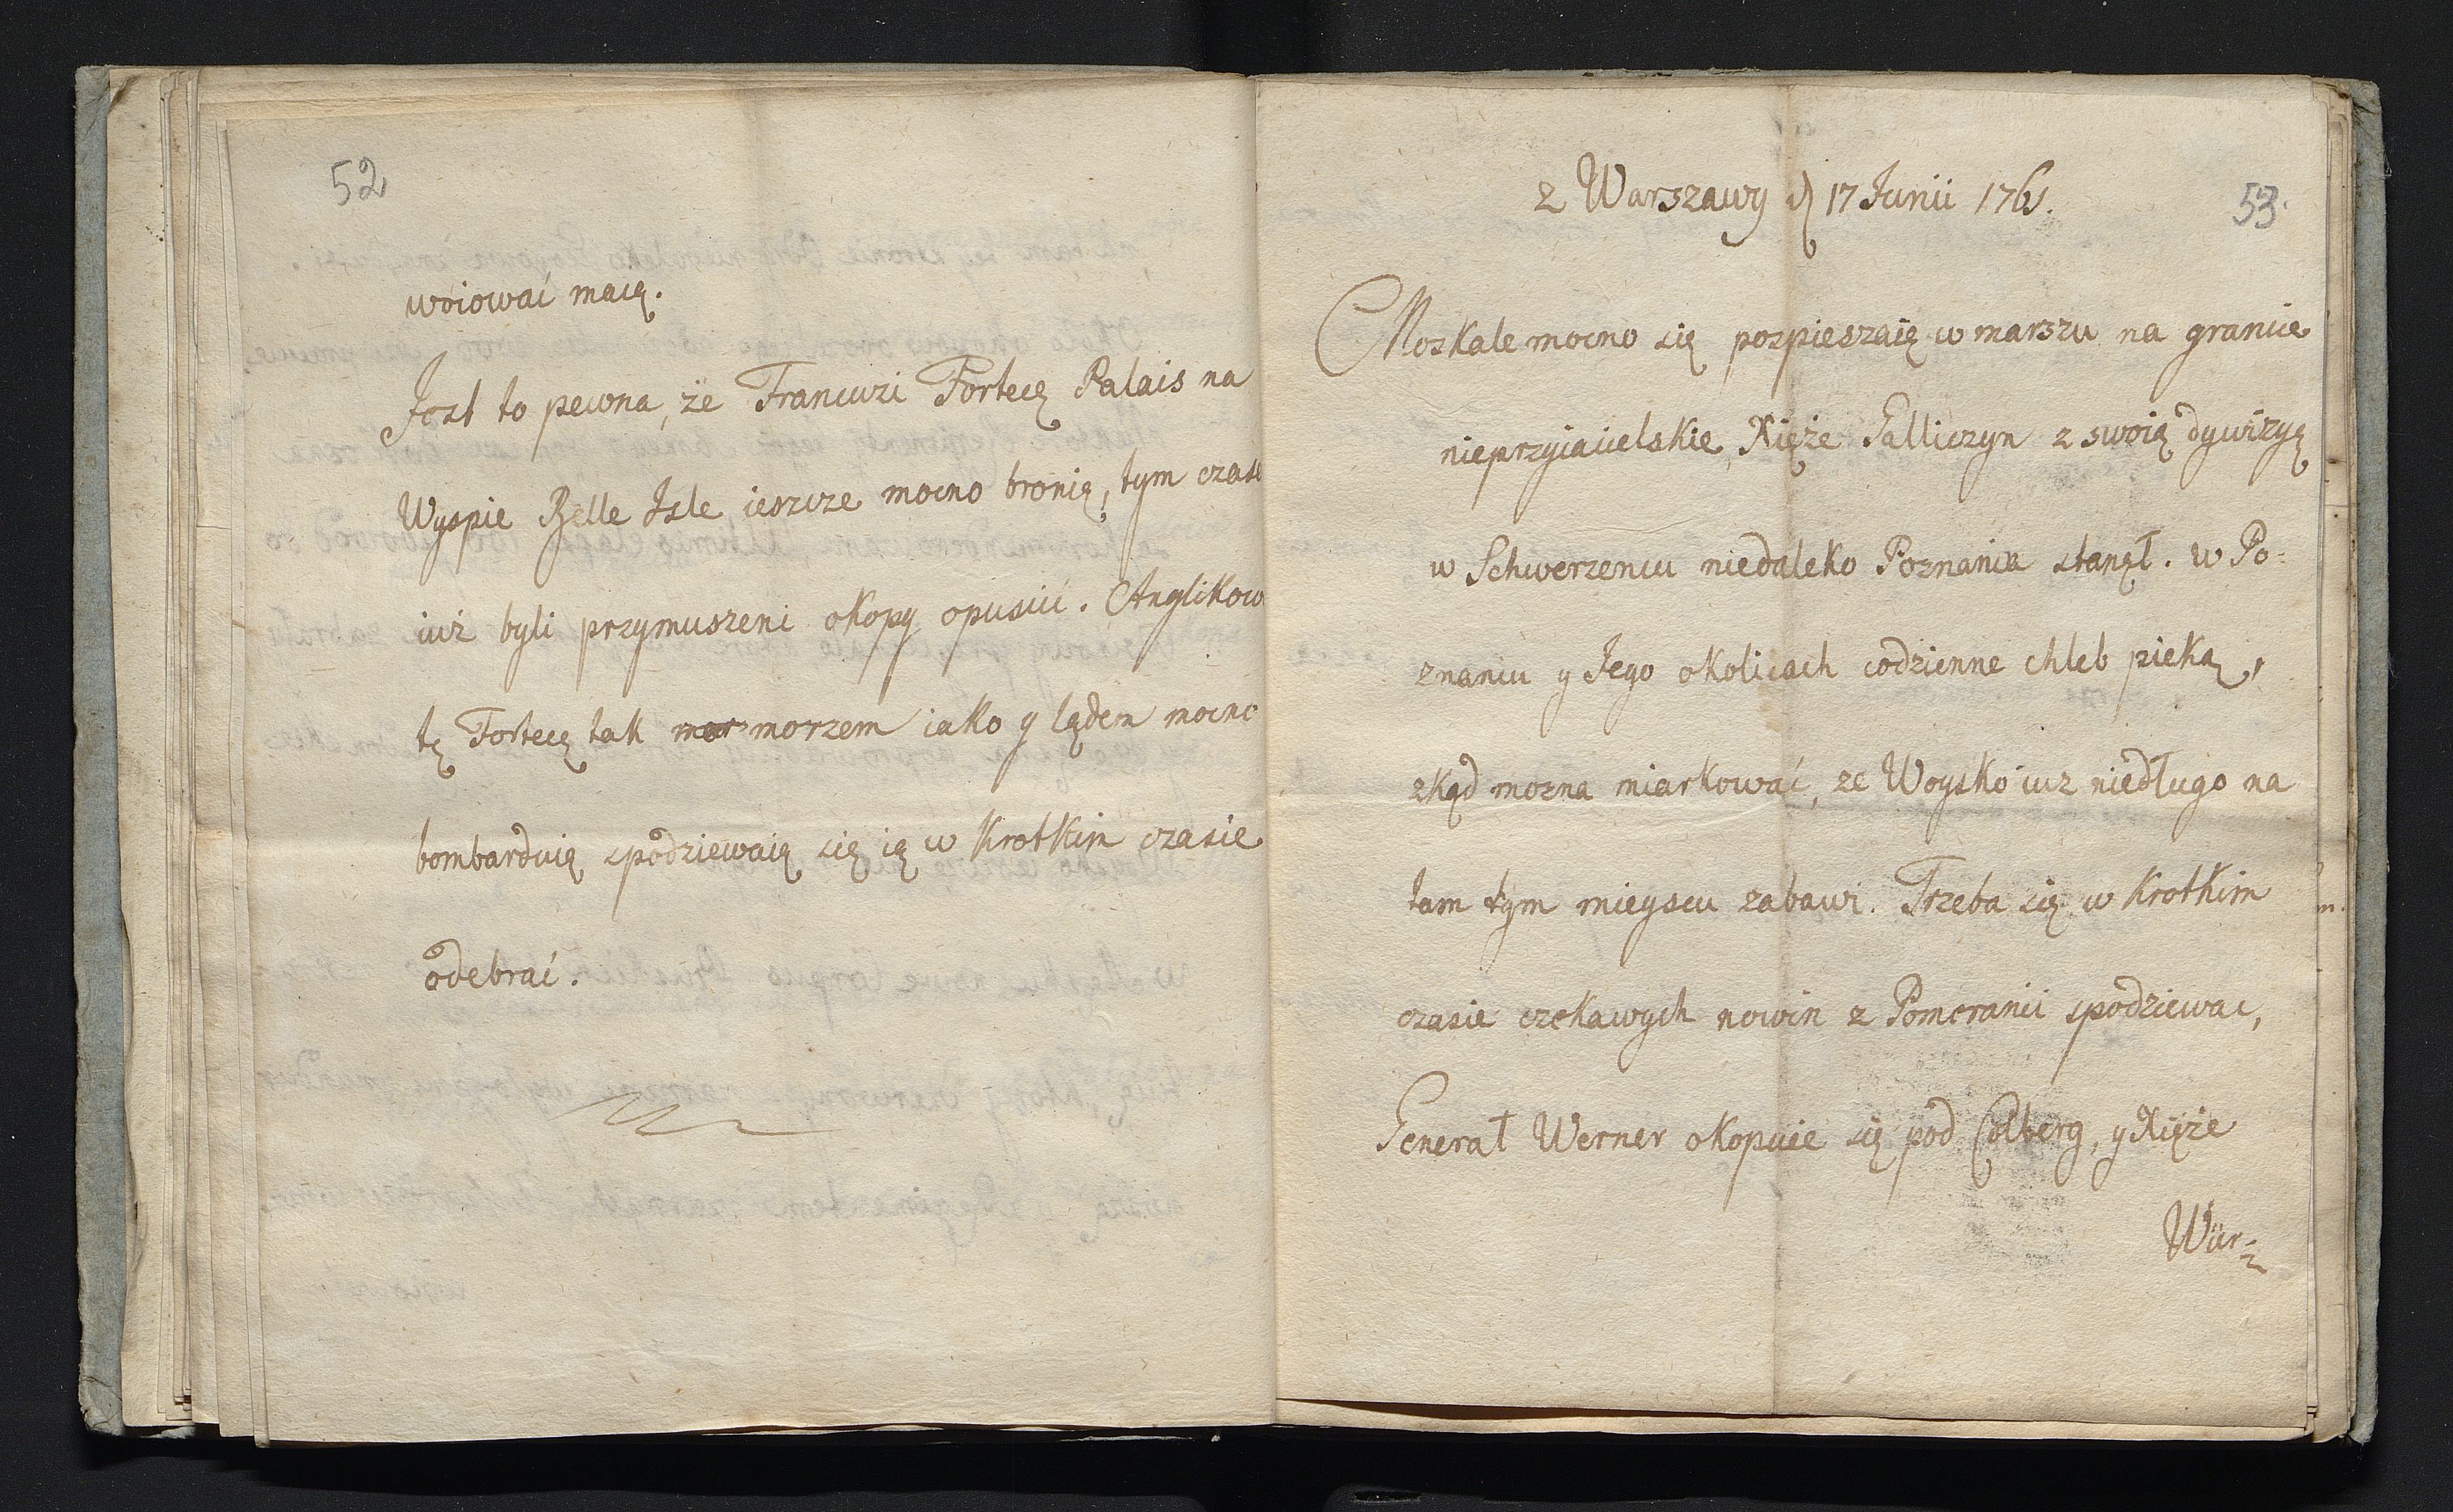 52
woiować maią.
Jest to pewna, że Francuzi Fortecę Palais na
Wyspie Belle Isle ieszcze mocno bronią, tym czase
iuż byli przymuszeni okopy opuscić. Anglikow
tę Fortecę tak mor morzem iako y lądem mocno
bombarduią spodziewaią się ią w krotkim czasie
odebrać.
z Warszawy d 17 Junii 1761.
53.
Moskale mocno się pospieszaią w marszu na granice
nieprzyiacielskie, Xięże Galliczyn z swoią dywizyą
w Schwerzencu niedaleko Poznania stanął. w Po=
znaniu y Jego okolicach codzienne chleb pieką,
zkąd mozna miarkować, ze Woysko iuz niedługo na
tam tym mieyscu zabawi. Trzeba się w krotkim
czasie czekawych nowin z Pomeranii spodziewac,
Generał Werner okopuie się pod Colberg, y Xięże
Wür=